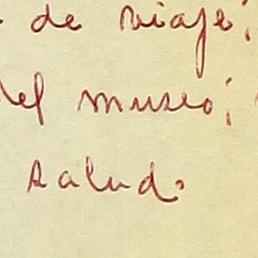 de viaje;
del museo;
salud.